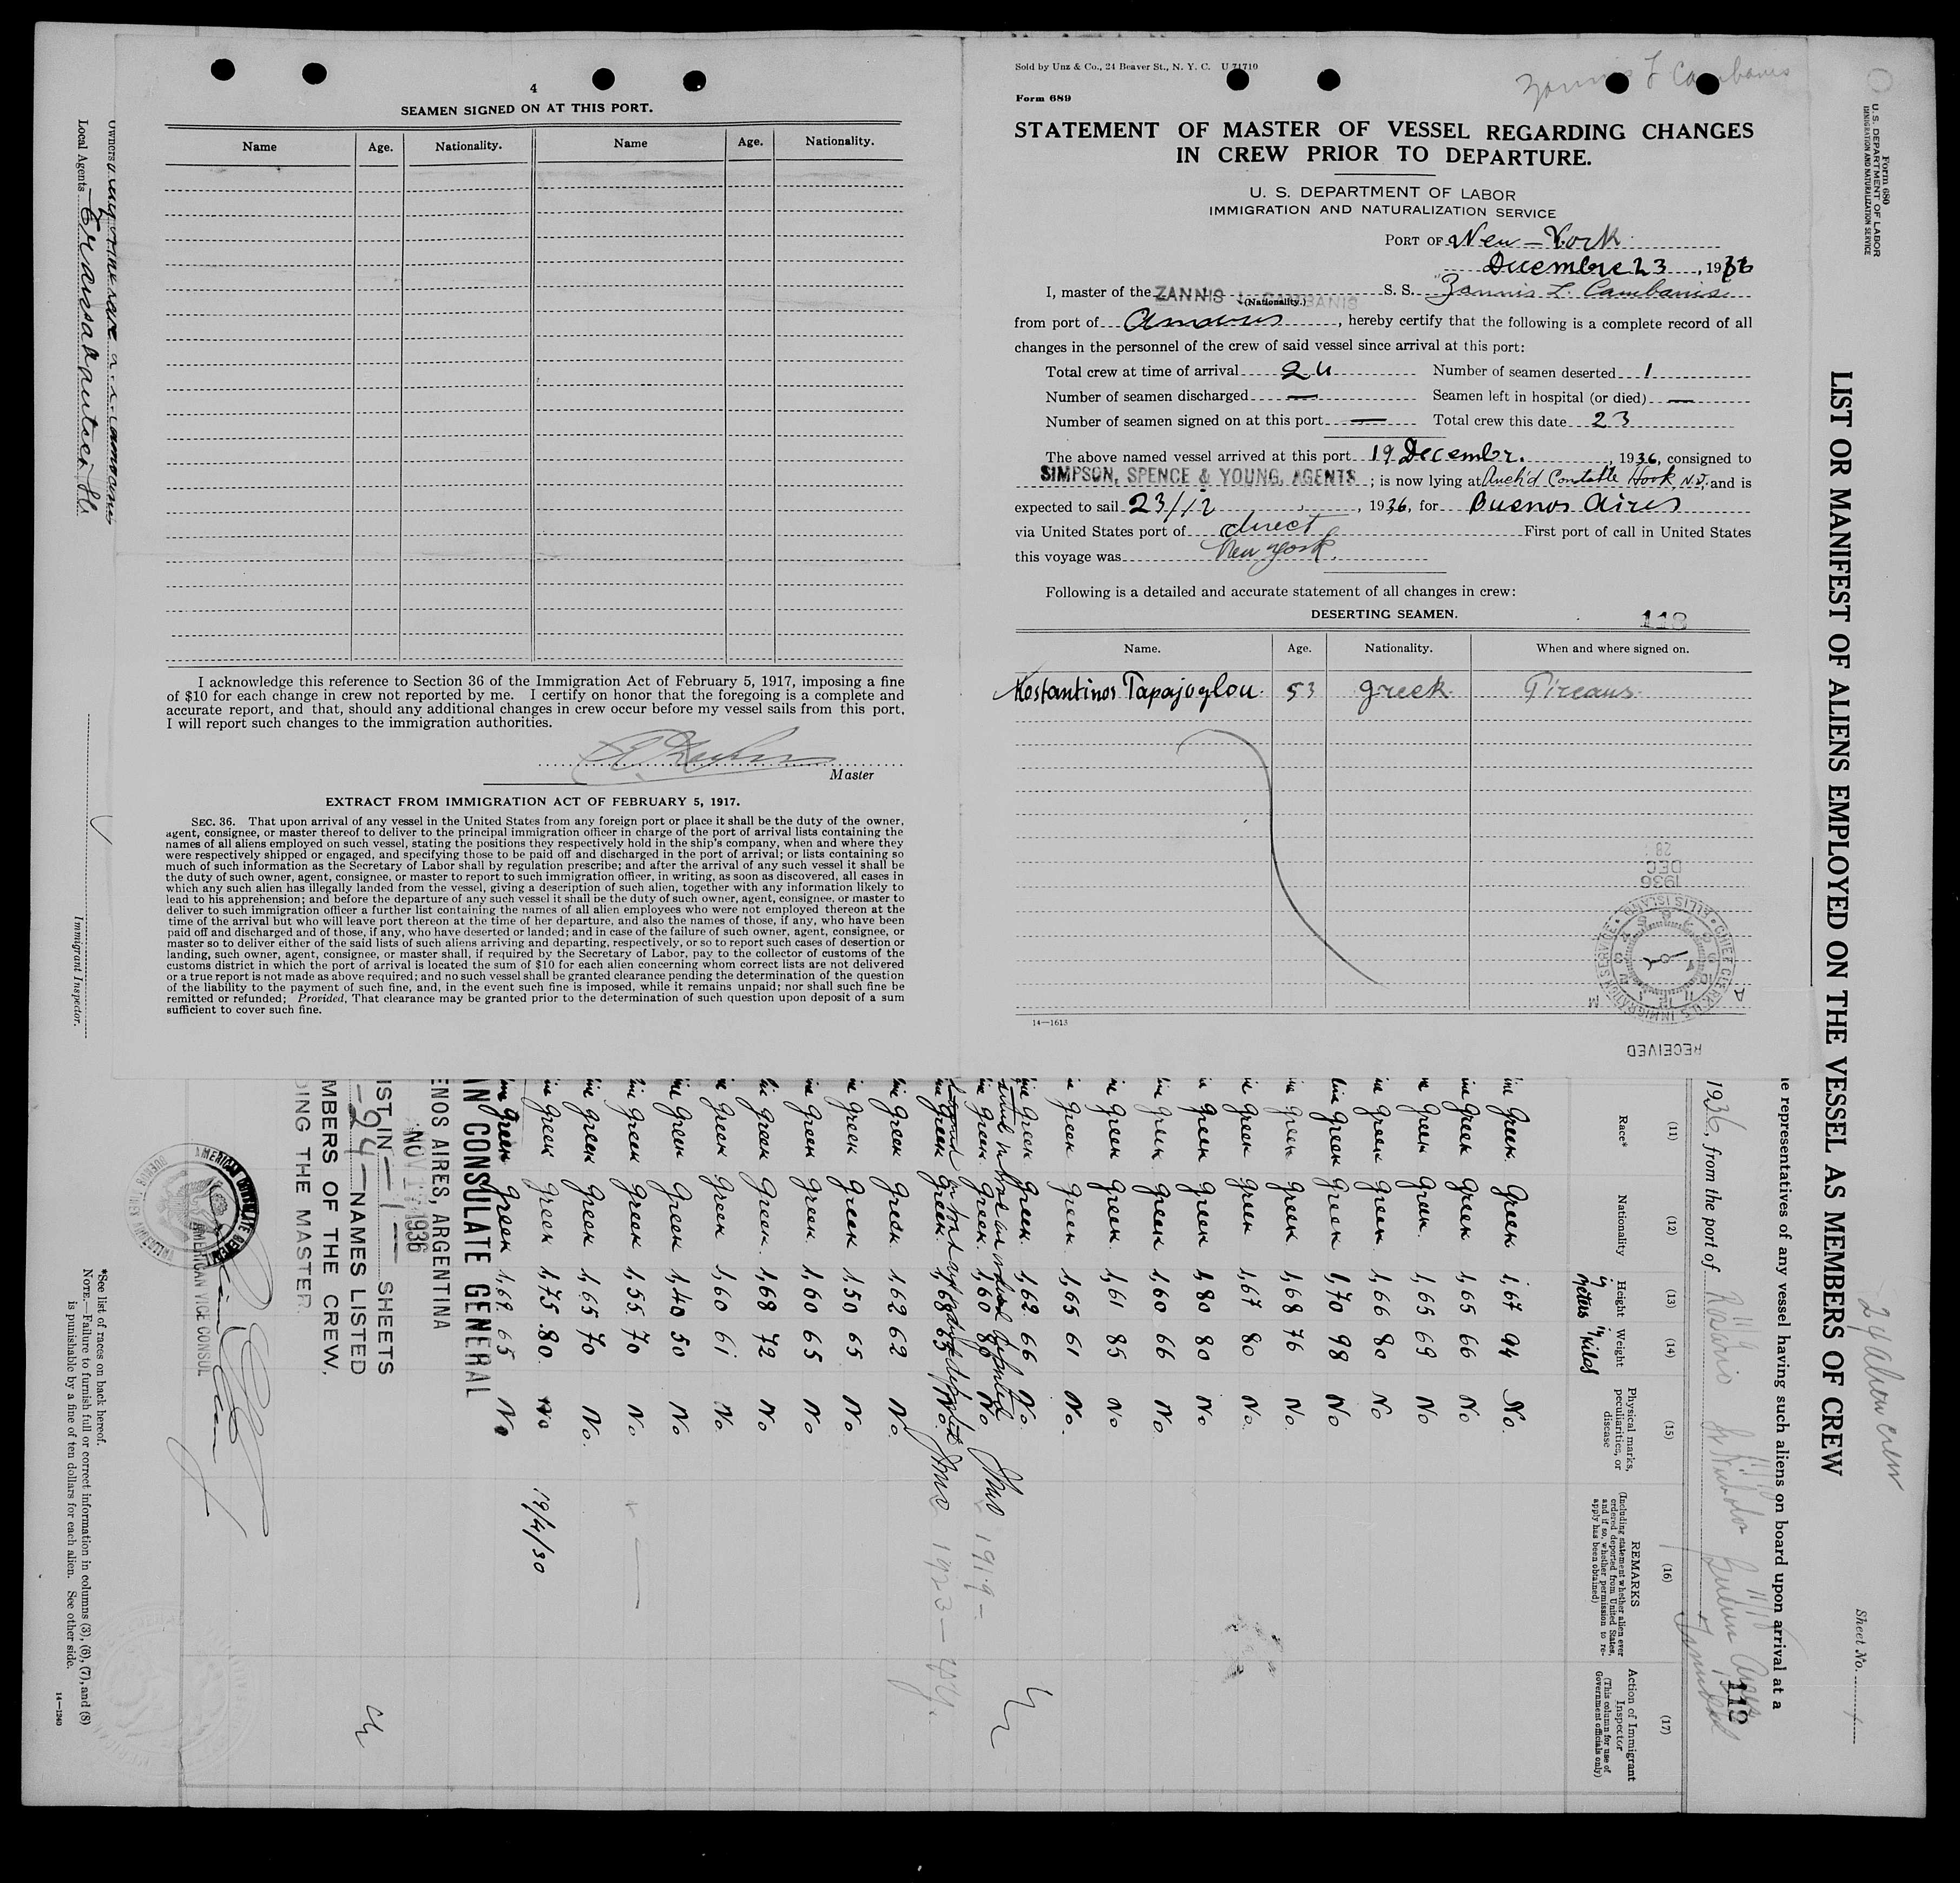 4
SEAMEN SIGNED ON AT THIS PORT.
Name Age. Nationality. Name Age. Nationality.
I acknowledge this reference to Section 36 of the Immigration Act of February 5, 1917, imposing a fine
of $10 for each change in crew not reported by me. I certify on honor that the foregoing is a complete and
accurate report, and that, should any additional changes in crew occur before my vessel sails from this port,
I will report such changes to the immigration authorities.
Master
EXTRACT FROM IMMIGRATION ACT OF FEBRUARY 5, 1917.
SEC. 36. That upon arrival of any vessel in the United States from any foreign port or place it shall be the duty of the owner,
agent, consignee, or master thereof to deliver to the principal immigration officer in charge of the port of arrival lists containing the
names of all aliens employed on such vessel, stating the positions they respectively hold in the ship's company, when and where they
were respectively shipped or engaged, and specifying those to be paid off and discharged in the port of arrival; or lists containing so
much of such information as the Secretary of Labor shall by regulation prescribe; and after the arrival of any such vessel it shall be
the duty of such owner, agent, consignee, or master to report to such immigration officer, in writing, as soon as discovered, all cases in
which any such alien has illegally landed from the vessel, giving a description of such alien, together with any information likely to
lead to his apprehension; and before the departure of any such vessel it shall be the duty of such owner, agent, consignee, or master to
deliver to such immigration officer a further list containing the names of all alien employees who were not employed thereon at the
time of the arrival but who will leave port thereon at the time of her departure, and also the names of those, if any, who have been
paid off and discharged and of those, if any, who have deserted or landed; and in case of the failure of such owner, agent, consignee, or
master so to deliver either of the said lists of such aliens arriving and departing, respectively, or so to report such cases of desertion or
landing, such owner, agent, consignee, or master shall, if required by the Secretary of Labor, pay to the collector of customs of the
customs district in which the port of arrival is located the sum of $10 for each alien concerning whom correct lists are not delivered
or a true report is not made as above required; and no such vessel shall be granted clearance pending the determination of the question
of the liability to the payment of such fine, and, in the event such fine is imposed, while it remains unpaid; nor shall such fine be
remitted or refunded; Provided, That clearance may be granted prior to the determination of such question upon deposit of a sum
sufficient to cover such fine.
Sold by Unz & Co., 24 Beaver St., N. Y. C. U 71710
Zannis L Cambanis
Form 689
STATEMENT OF MASTER OF VESSEL REGARDING CHANGES
IN CREW PRIOR TO DEPARTURE.
U. S. DEPARTMENT OF LABOR
IMMIGRATION AND NATURALIZATION SERVICE
PORT OF New-York
Decembre 23, 1936
I, master of the ZANNIS L. CAMBANIS (Nationality.) S. S. Zannis L. Cambanis
from port of Andros, hereby certify that the following is a complete record of all
changes in the personnel of the crew of said vessel since arrival at this port:
Total crew at time of arrival 24 Number of seamen deserted 1
Number of seamen discharged — Seamen left in hospital (or died) —
Number of seamen signed on at this port — Total crew this date 23
The above named vessel arrived at this port 19 December, 1936, consigned to
SIMPSON, SPENCE & YOUNG, AGENTS; is now lying at Anch'd Constable Hook, N.J. and is
expected to sail 23/12, 1936, for Buenos Aires
via United States port of direct First port of call in United States
this voyage was New York.
Following is a detailed and accurate statement of all changes in crew:
DESERTING SEAMEN. 118
Name. Age. Nationality. When and where signed on.
Kostantinos Papajoglou 53 greek Pireaus
28
DEC
1936
CHIEF CLERK U.S. IMMIGRATION SERVICE ELLIS ISLAND
A M
RECEIVED
14—1613
Form 680
U. S. DEPARTMENT OF LABOR
IMMIGRATION AND NATURALIZATION SERVICE
24 alien crew
Sheet No.
LIST OR MANIFEST OF ALIENS EMPLOYED ON THE VESSEL AS MEMBERS OF CREW
e representatives of any vessel having such aliens on board upon arrival at a
1936, from the port of Rosario
119
(11) (12) (13) (14) (15) (16) (17)
Race* Nationality Height in meters Weight in kilos Physical marks, peculiarities, or disease REMARKS (Including statement whether alien ever ordered deported from United States, and if so, whether permission to reapply has been obtained) Action of Immigrant Inspector (This column for use of Government officials only)
Greek Greek 1,67 94 No
Greek Greek 1,65 66 No
Greek Greek 1,65 69 No
Greek Greek 1,66 80 No
Greek Greek 1,70 98 No
Greek Greek 1,68 76 No
Greek Greek 1,67 80 No
Greek Greek 1,80 80 No
Greek Greek 1,60 66 No
Greek Greek 1,61 85 No
Greek Greek 1,65 61 No
Greek Greek 1,62 66 No
Greek Greek 1,60 80 No 1919
Greek Greek 1,68 85 No 1923
Greek Greek 1,62 62 No
Greek Greek 1,50 65 No
Greek Greek 1,60 65 No
Greek Greek 1,68 72 No
Greek Greek 1,60 61 No
Greek Greek 1,40 50 No
Greek Greek 1,55 70 No
Greek Greek 1,65 70 No
Greek Greek 1,75 80 No 19/4/30
Greek Greek 1,69 65 No
N CONSULATE GENERAL
ENOS AIRES, ARGENTINA
NOV 1936
IST IN — 1 — SHEETS
— 24 — NAMES LISTED
MBERS OF THE CREW,
DING THE MASTER.
AMERICAN VICE CONSUL
*See list of races on back hereof.
NOTE.—Failure to furnish full or correct information in columns (3), (6), (7), and (8)
is punishable by a fine of ten dollars for each alien. See other side.
14—1240
Owners
Local Agents
Immigrant Inspector.